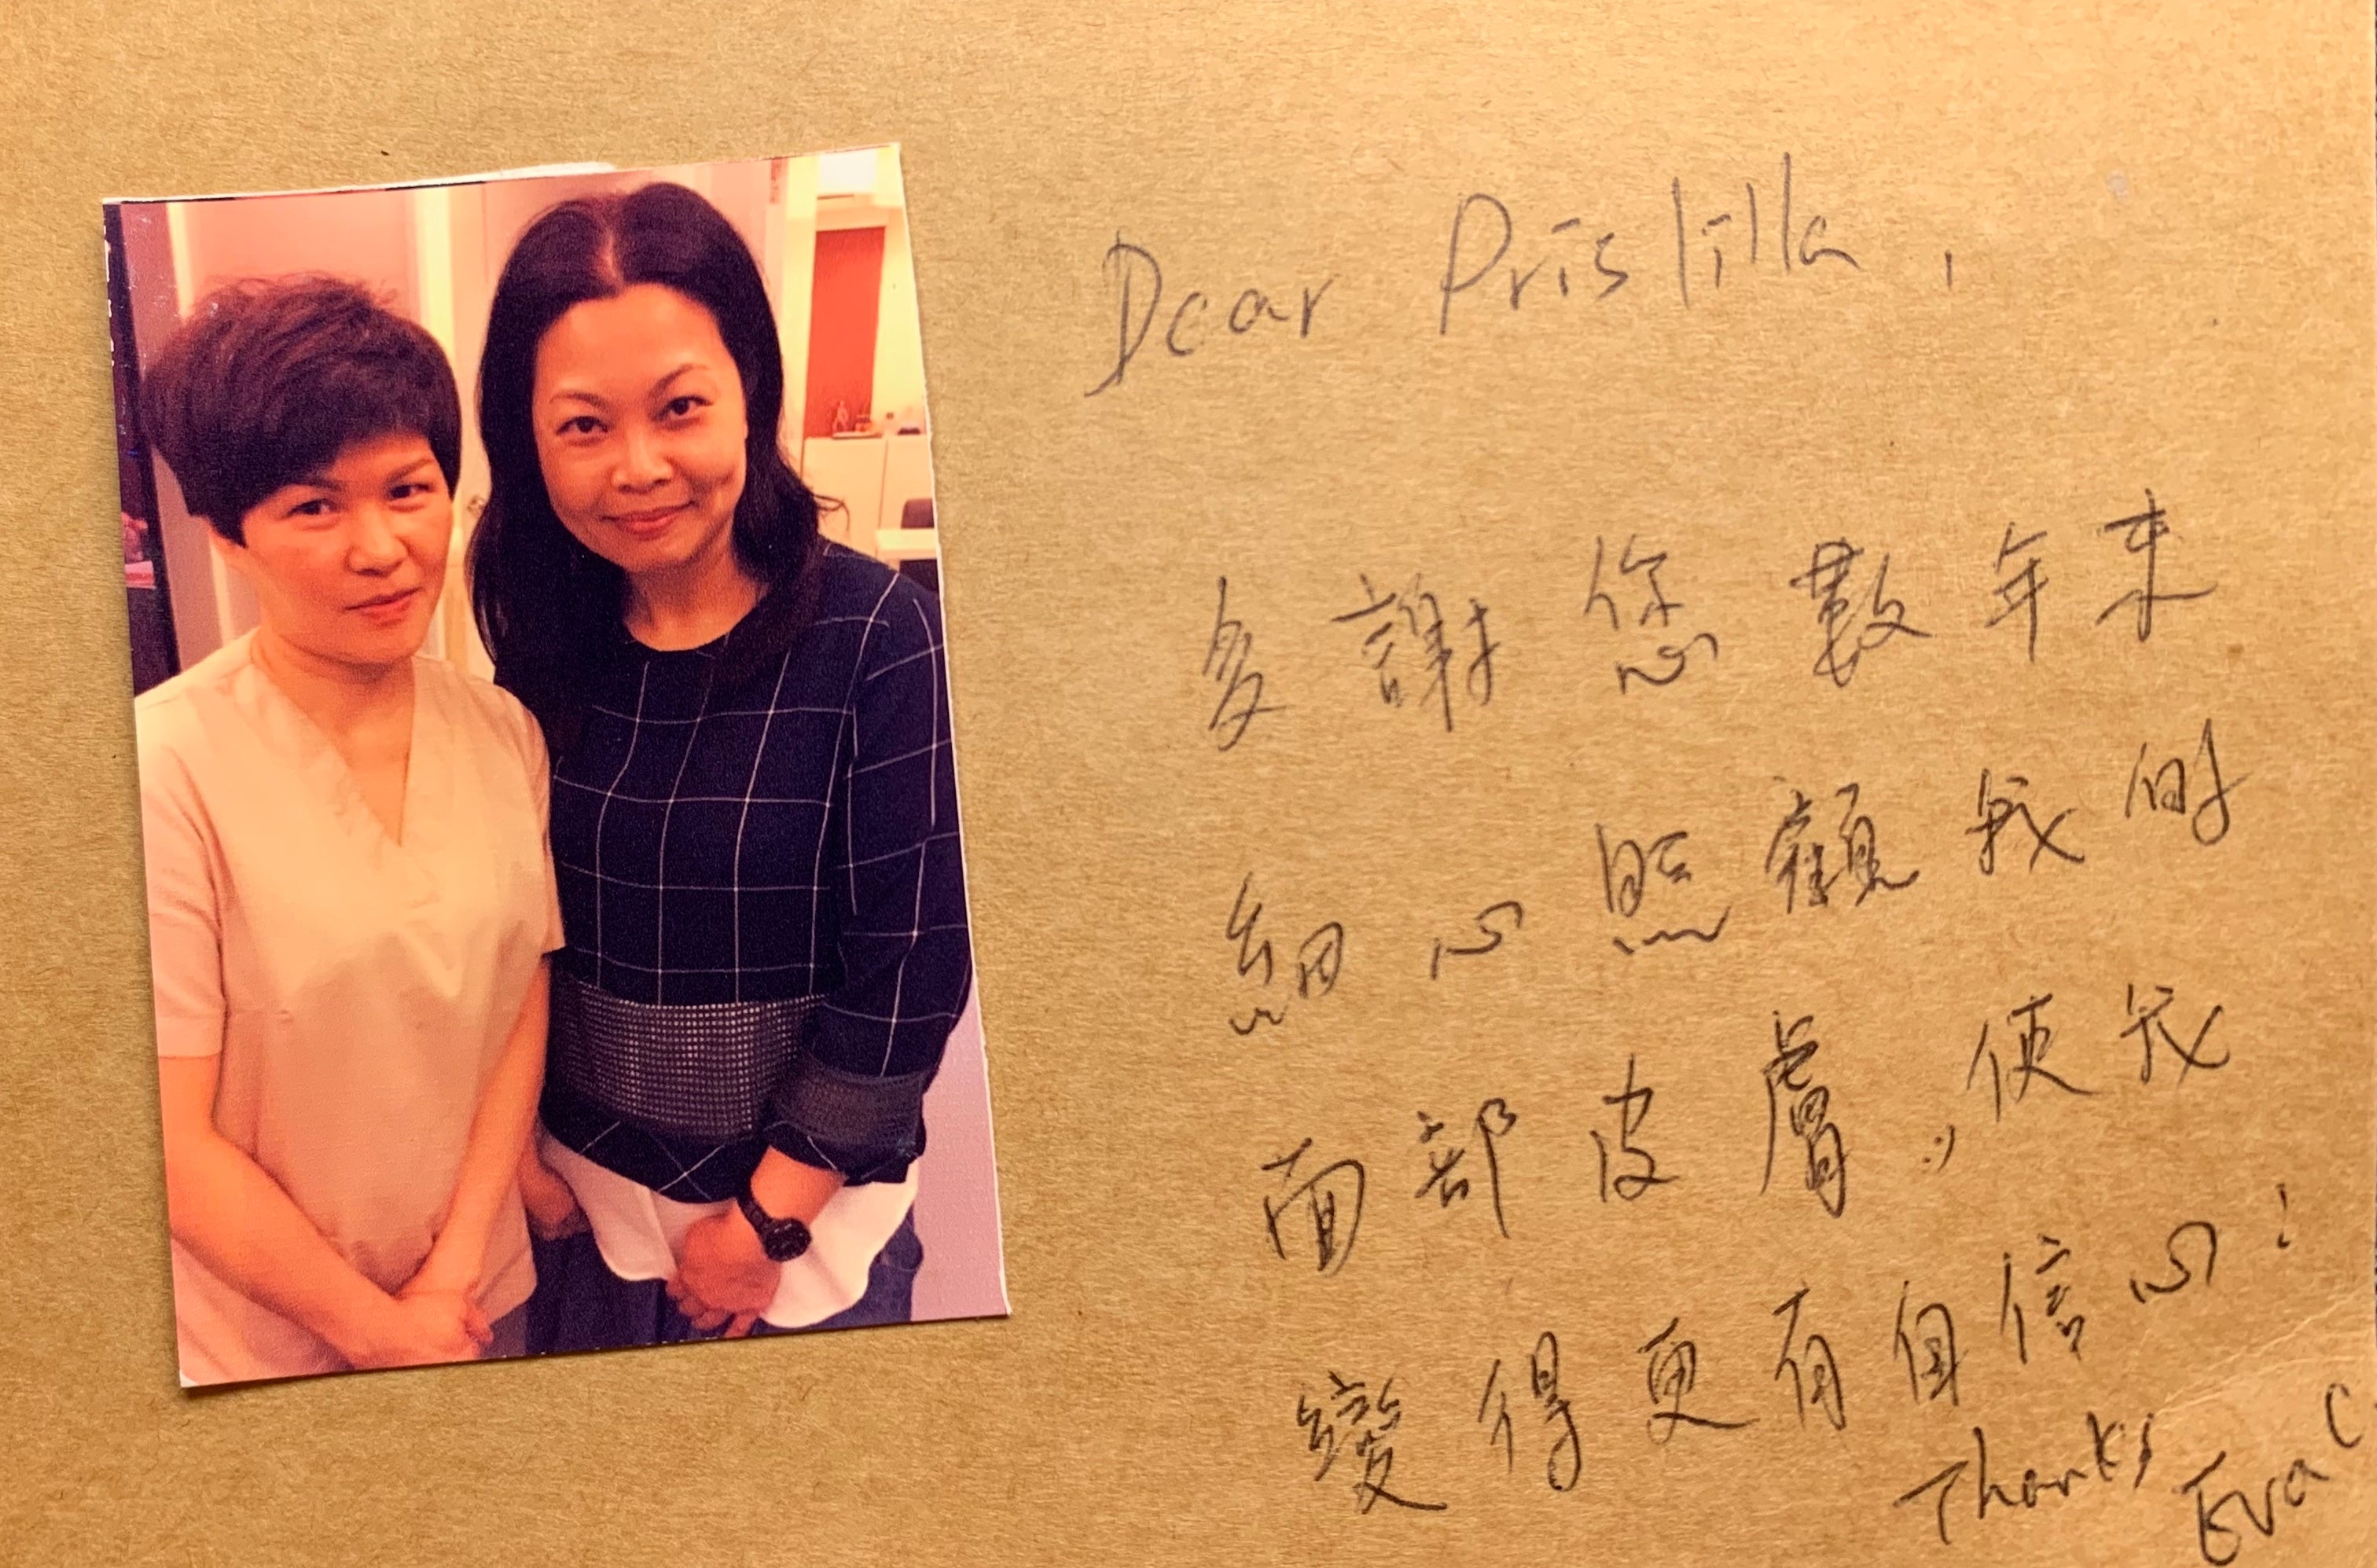 Dear Prislilla,
多謝您數年來
細心照顧我的
面部皮膚，使我
變得更有自信心!
Thanks
Eva C